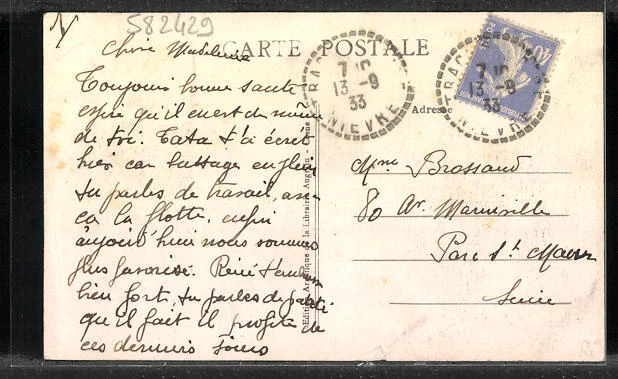 582429
CARTE POSTALE
Chère Madeleine
Toujours bonne santé
espère qu'il en est de même
de toi. Tata t'a écrit
hier
tu parles de travail, avec
ça la flotte, enfin
aujourd'hui nous sommes
plus favorisé. René t'embrasse
bien fort, tu parles de parti
qu'il fait il profite de
ces derniers jours
7 13 -9 33
NIEVRE
7 13 -9 33
NIEVRE
Adresse
Mme Brossard
80 Av.
Parc St Maur
Seine
Edition Artistique de la Librairie